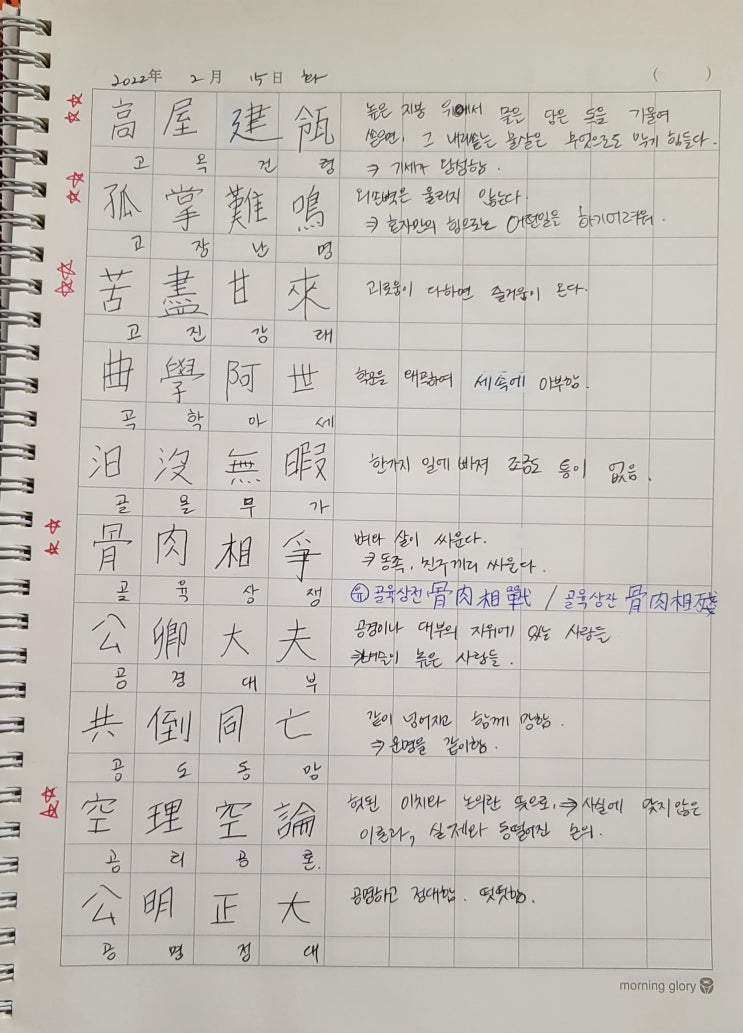 2022年 2月 15日 화 ( )
高屋建瓴 높은 지붕 위에서 묽은 담은 독을 기울여
쏟으면, 그 내리쏟는 물살은 무엇으로도 막기 힘들다.
고옥건령 ⇒ 기세가 당당함.
孤掌難鳴 외손벽은 울리지 않는다.
⇒ 혼자만의 힘으로는 어떤일은 하기어려워.
고장난명
苦盡甘來 괴로움이 다하면 즐거움이 온다.
고진감래
曲學阿世 학문을 왜곡하여 세속에 아부함.
곡학아세
汨沒無暇 한가지 일에 빠져 조금도 틈이 없음.
골몰무가
骨肉相爭 뼈와 살이 싸운다.
⇒ 동족, 친구끼리 싸운다.
골육상쟁 ㉴ 골육상전 骨肉相戰 / 골육상잔 骨肉相殘
公卿大夫 공경이나 대부의 지위에 있는 사람들
⇒ 벼슬이 높은 사람들.
공경대부
共倒同亡 같이 넘어지고 함께 망함.
⇒ 운명을 같이함.
공도동망
空理空論 헛된 이치와 논의란 뜻으로, ⇒ 사실에 맞지않은
이론과, 실제와 동떨어진 논의.
공리공론.
公明正大 공명하고 정대함. 떳떳함.
공명정대
morning glory